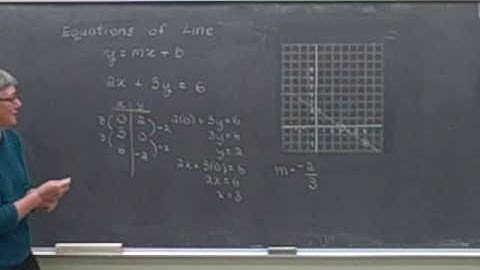 Equations of Line
y = mx + b
2x + 3y = 6
x y
3 ( 0 2 ) -2
3 ( 3 0 ) -2
6 -2
2(0) + 3y = 6
3y = 6
y = 2
2x + 3(0) = 6
2x = 6
x = 3
m = -2/3